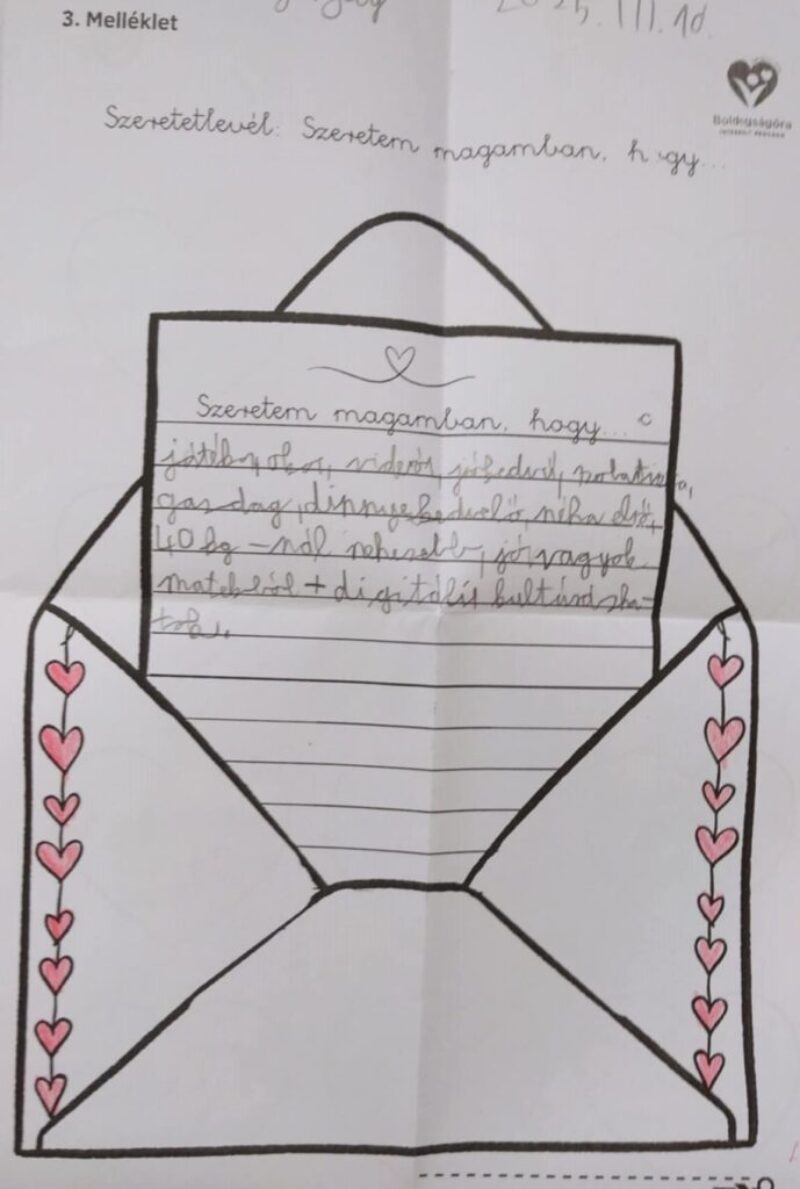 2025. III. 10.
3. Melléklet
Boldogságóra
Szeretetlevél: Szeretem magamban, hogy...
Szeretem magamban, hogy...
játékos, vidám, jókedvű,
gazdag, dinnyekedvelő, néha
40 kg-nál nehezebb, jó vagyok
matekból + digitális kultúrá